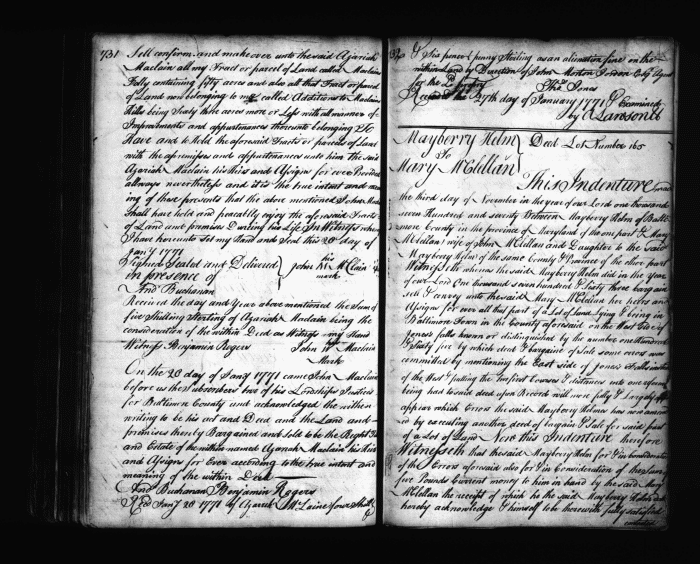 731
Sell confirm and make over unto the said Azariah
Maclain all my Tract or parcel of Land called Maclains
Folly containing fifty acres and also all that Tract or parcel
of Land now belonging to me called Addition to Maclains
Hills being Sixty three acres more or Less with all manner of
Improvements and appurtenances thereunto belonging To
Have and to Hold the aforesaid Tracts or parcels of Land
with the appurtenances unto him the said
Azariah Maclain his Heirs and Assigns for ever Provided
allways nevertheless and it is the true intent and mean
ing of these presents that the above mentioned John Maclain
Shall have hold and peaceably enjoy the aforesaid Tracts
of Land and premises During his Life In Witness whereof
I have hereunto set my Hand and Seal this 20 day of
Jany 1771
Signed Sealed and Delivered
in presence of
John M McClain
his
mark
And Buchanan
Received the day and Year above mentioned the Sum of
five Shilling Sterling of Azariah Maclain being the
consideration of the within Deed as Witness my Hand
Witness Benjamin Rogers
John Maclain
Mark
On the 20 day of Jany 1771 came John Maclain
before us the Subscribers two of his Lordships Justices
for Baltimore County and acknowledged the within
writing to be his act and Deed and the Land and
premises thereby Bargained and Sold to be the Right
and Estate of the within named Azariah Maclain his Heirs
and Assigns for Ever according to the true intent and
meaning of the within Deed
And Buchanan Benjamin Rogers
Recd Jany 20 1771 of Azariah McLaine four Shill
732
Six pence penny Sterling as an alienation fine on the
within Land by Direction of John Morton Jordan Esqr Agent
for the Proprietary
Thos Jones
Record the 27th day of January 1771 & Examined
by A Lawson Clk
Mayberry Helm
To
Mary McClellan
Deed Lot Number 165
This Indenture made
the third day of November in the year of our Lord one thousand
seven Hundred and seventy Between Mayberry Helm of Balti
more County in the province of Maryland of the one part & Mary
McClellan wife of John McClellan and Daughter to the said
Mayberry Helm of the same County & Province of the other part
Witnesseth whereas the said Mayberry Helm did in the Year
of our Lord One thousand seven hundred & Sixty three bargain
sell & convey unto the said Mary McClellan her heirs and
Assigns for ever all that part of a Lot of Land Lying & being in
Baltimore Town in the County aforesaid on the West Side of
Jones's falls known or distinguished by the number one Hundred
& Sixty five by which deed of bargain & Sale some errors was
committed by mentioning the East side of Jones's falls instead
of the West & putting the two first Courses & distances into one
being had to said deed upon Record will more fully & Largely
appear which Errors the said Mayberry Helm has now
by executing another deed of bargain & Sale for said part
of a Lot of Land Now this Indenture therefore
Witnesseth that the said Mayberry Helm for & in Consideration
of the Errors aforesaid also for & in Consideration of the sum
five Pounds Current money to him in hand by the said Mary
McClellan the receipt of which he the said Mayberry Helm doth
hereby acknowledge & himself to be therewith fully satisfied